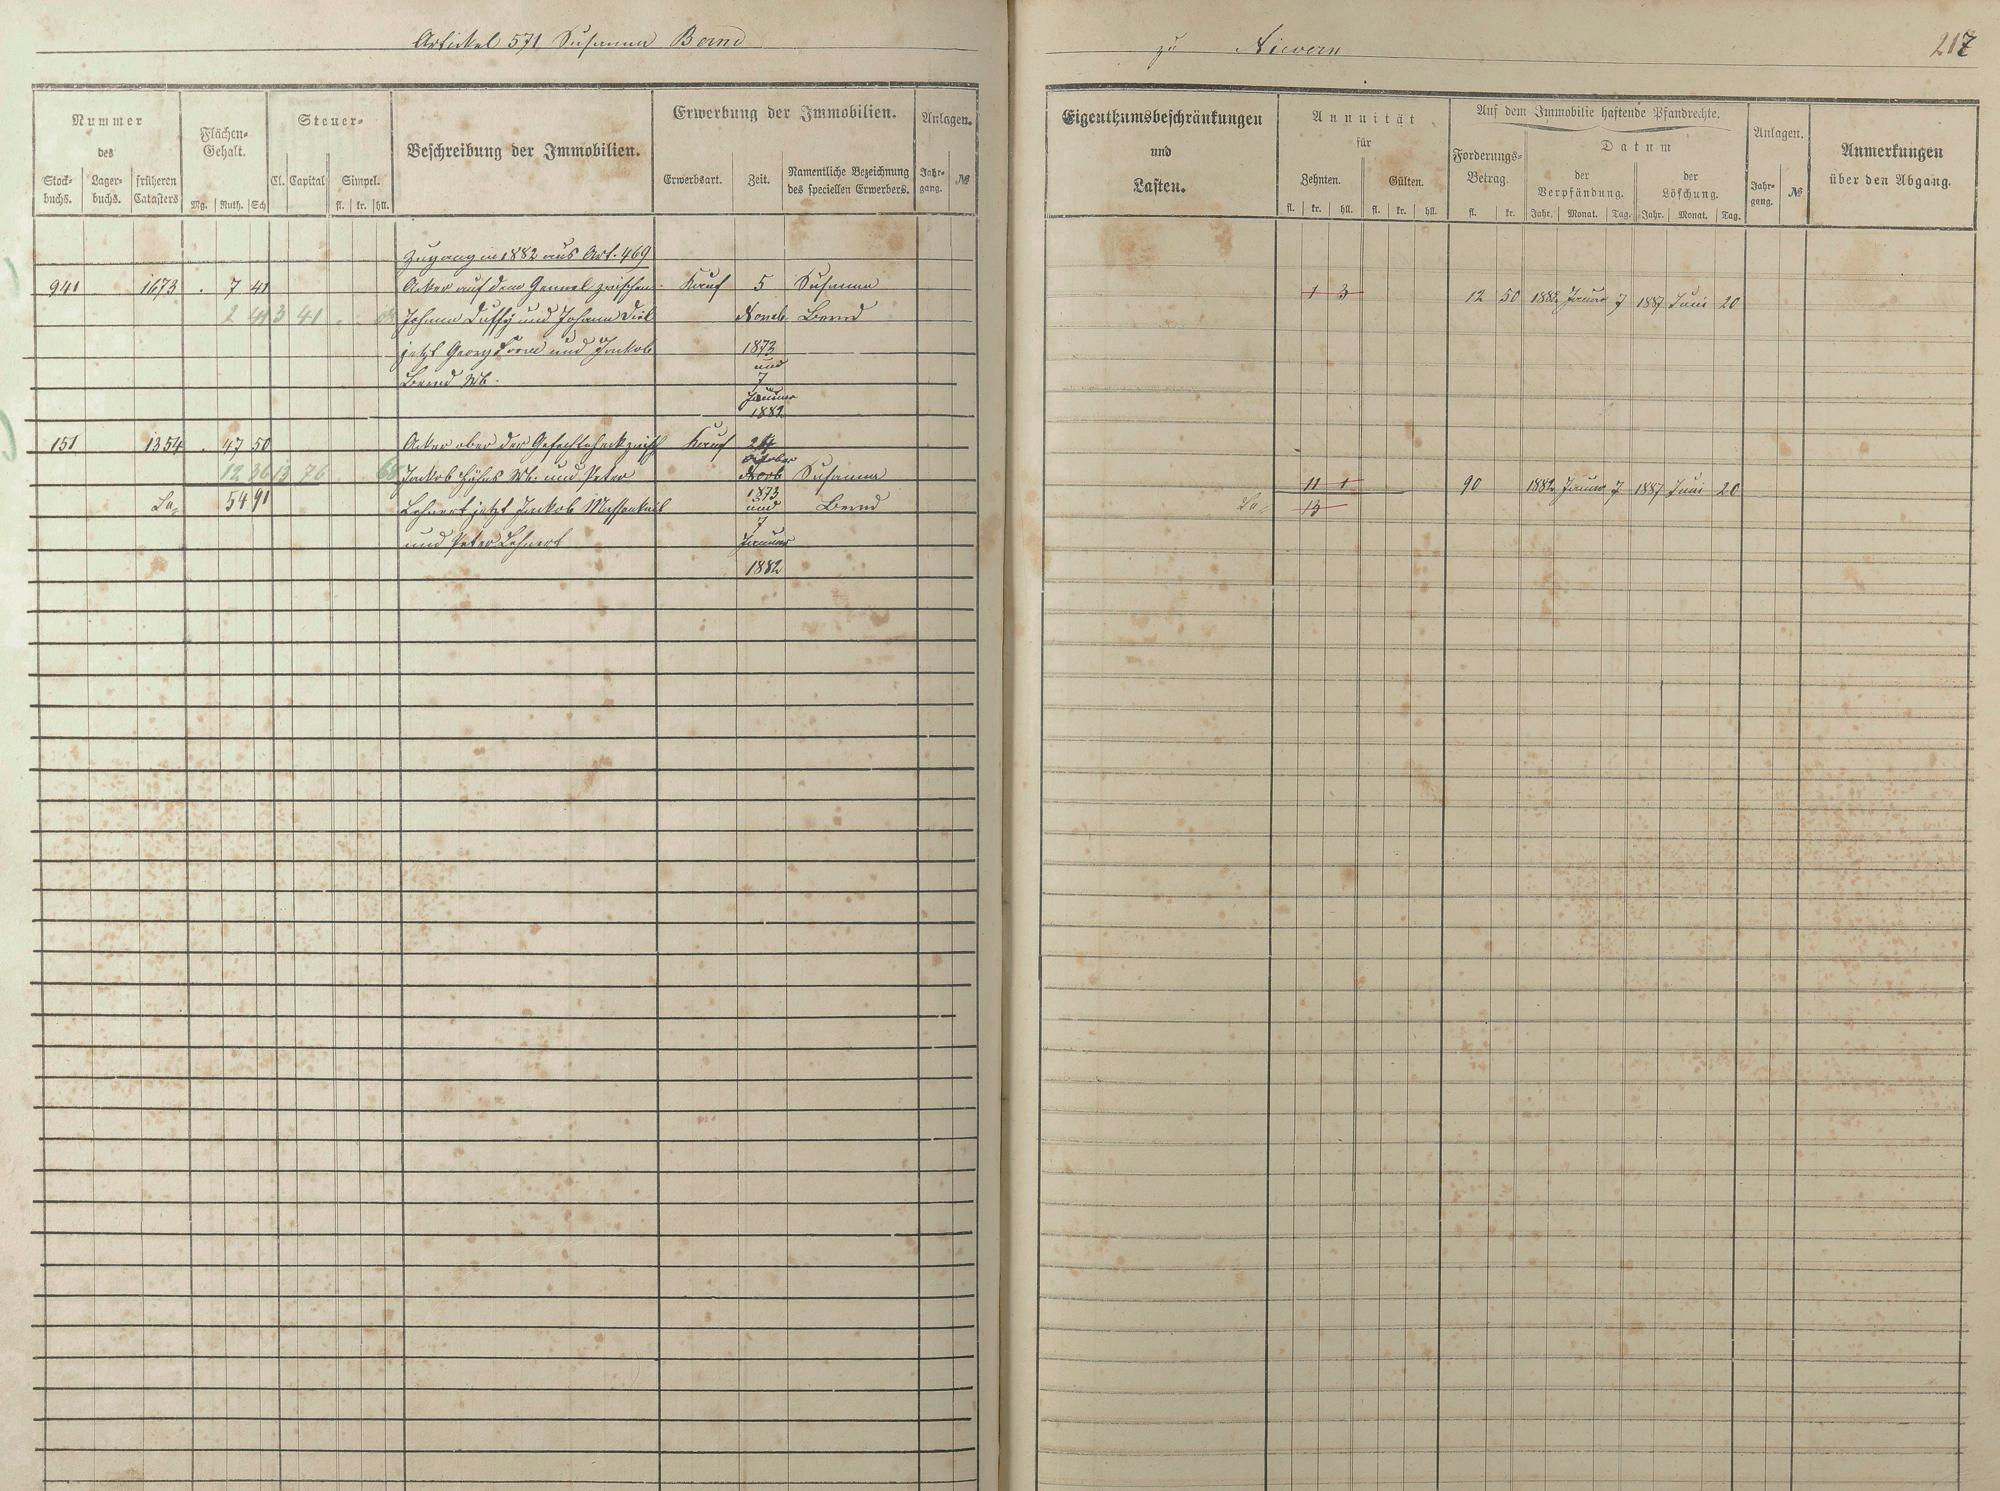 Artickel 571 Susanna Bernd
zu Nievern
217
Nummer
des
Stock-
buchs.
Lager-
buchs.
früheren
Catasters
Flächen-
Gehalt.
Mg. Ruth. Sch
Steuer-
Cl. Capital Simpel.
fl. kr. hll.
Beschreibung der Immobilien.
Erwerbung der Immobilien.
Erwerbsart. Zeit. Namentliche Bezeichnung
des speciellen Erwerbers.
Anlagen.
Jahr-
gang. №
Eigenthumsbeschränkungen
und
Lasten.
Annuität
für
Zehnten. Gülten.
fl. kr. hll. fl. kr. hll.
Auf dem Immobilie haftende Pfandrechte.
Forderungs-
Betrag.
fl. kr.
Datum
der
Verpfändung.
Jahr. Monat. Tag.
der
Löschung.
Jahr. Monat. Tag.
Anlagen.
Jahr-
gang. №
Anmerkungen
über den Abgang.
Zugang in 1882 aus Art. 469
941 1673 . 7 41 Acker auf dem zwischen Kauf 5 Susanna
1 3 12 50 1882 Januar 7 1887 Juni 20
2 41 3 41 Johann Duffy und Johann Diel Noveb Bernd
jetzt Georg und Jackob 1873
und
Bernd Wb. 7
Januar
1882
151 1354 . 47 50 Acker ober der Kauf 24
October
12 36 13 76 68 Jackob Höhns Wb. und Peter Novb Susanna
11 1 90 1882 Januar 7 1887 Juni 20
1873
La. 54 91 Lehnert jetzt Jackob und Bernd
La. 13
7
und Peter Lehnert Januar
1882